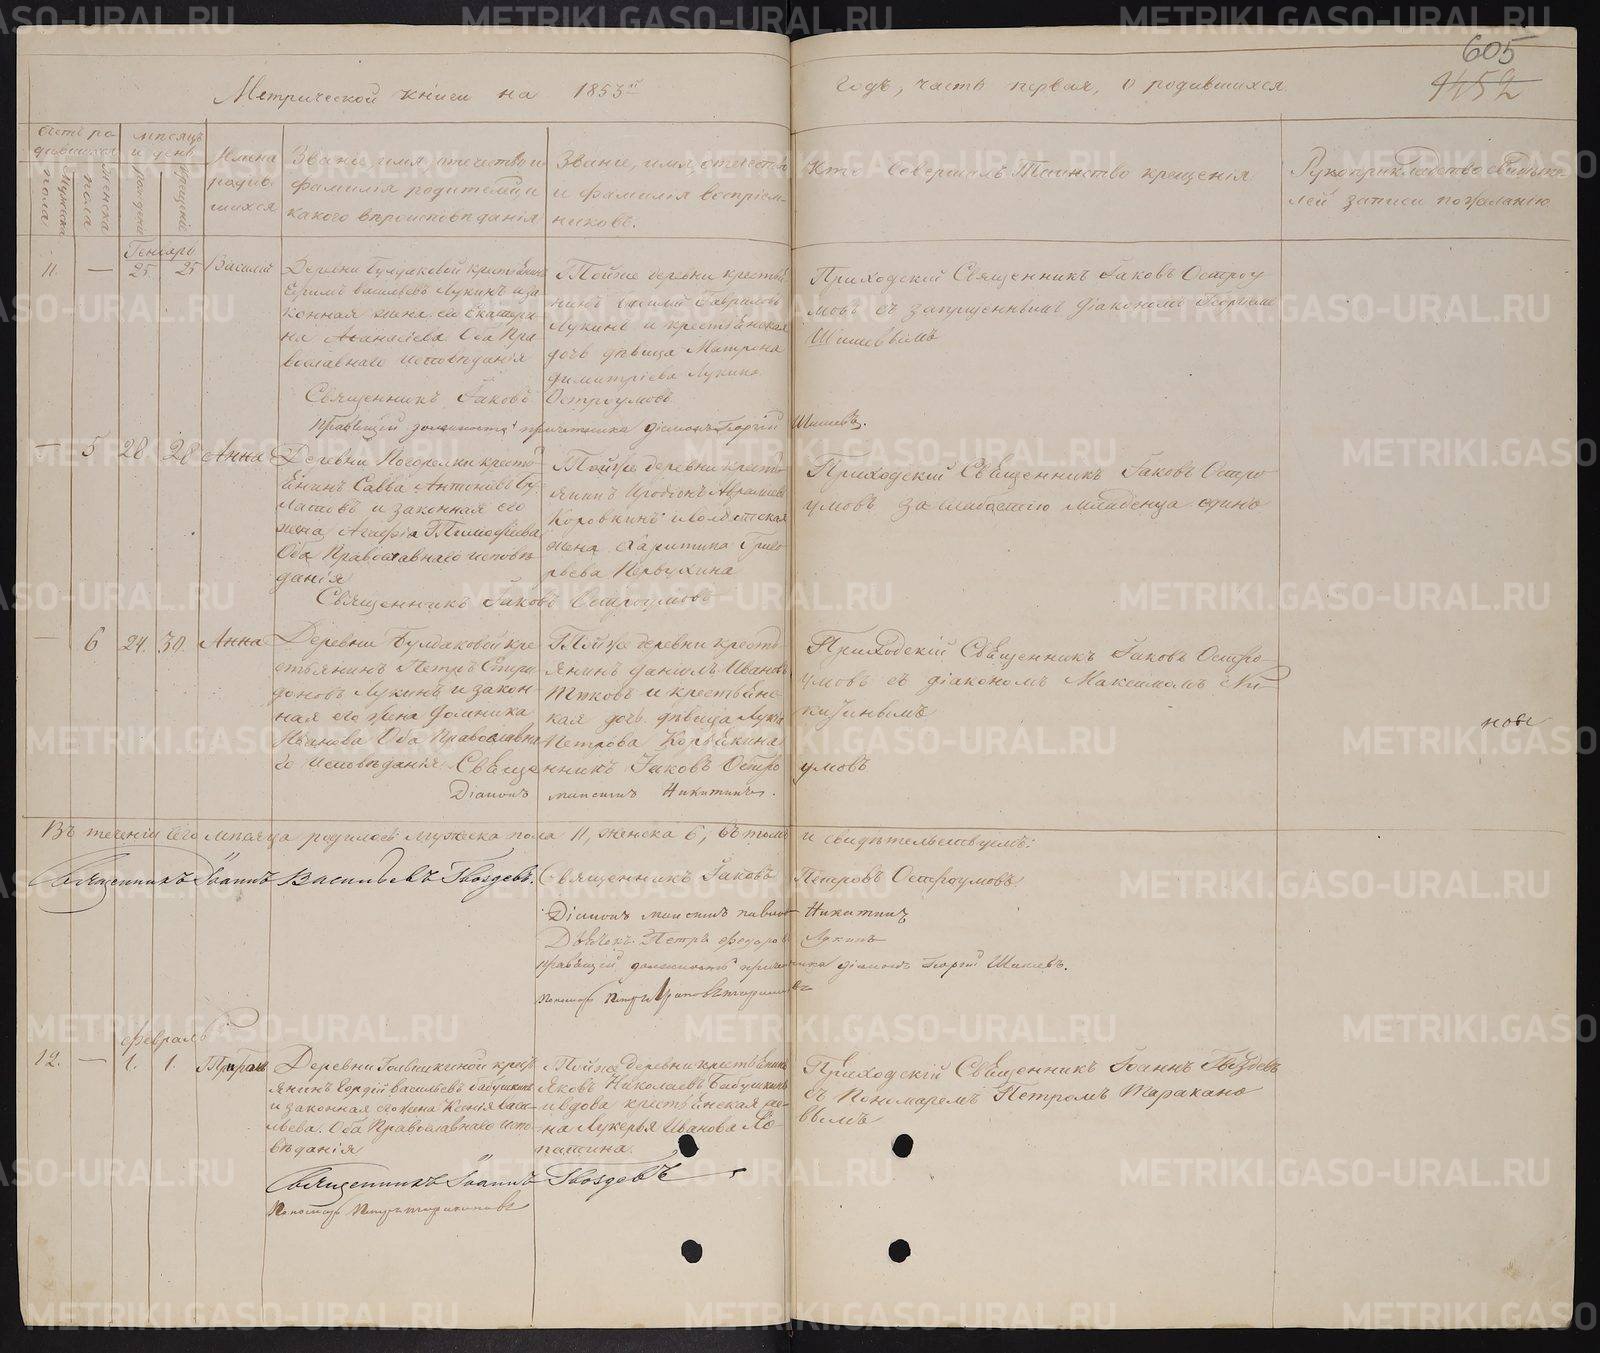 605
1452
Метрической книги на 1853й годъ, часть первая, о родившихся
Счетъ ро
дившихся
Мужеска
пола
Женска
пола
Мѣсяцъ
и день
рожденія
крещенія
Имена
родив
шихся
Званіе, имя, отечество и
фамилія родителей и
какого вѣроисповѣданія
Званіе, имя, отечество
и фамилія воспріем-
никовъ.
Кто совершалъ Таинство крещенія
Рукоприкладство свидѣте
лей записи по желанію
Генварь
11. — 25. 25 Василій
Деревни Булдаковой крестьянинъ
Ефимъ Васильевъ Лукинъ и за
конная жена его Екатери-
на Ананіева Оба Пра
вославнаго исповѣданія
Тойже деревни крестья
нинъ Василій Гавриловъ
Лукинъ и крестьянская
дочь дѣвица Матрона
Димитріева Лукина
Приходскій Священникъ Іаковъ Остроу
мовъ съ запрещеннымъ діакономъ Георгіемъ
Шишевымъ
Священникъ Іаковъ Остроумовъ
Правящій должность причетника діаконъ Георгій Шишевъ.
— 5 28 28 Анна
Деревни Погорелки кресть
янинъ Савва Антоновъ Бу
латовъ и законная его
жена Агафія Тимофеева
Оба Православнаго исповѣ
данія
Тойже деревни кресть
янинъ Иродіонъ Авраамовъ
Коровкинъ и волостская
жена Харитина Григо
рьева Первухина
Приходскій Священникъ Іаковъ Остро
умовъ за слабостію младенца одинъ
Священникъ Іаковъ Остроумовъ
— 6 24. 30. Анна
Деревни Булдаковой кре
стьянинъ Петръ Спири
доновъ Лукинъ и закон-
ная его жена Домника
Иванова Оба Православна
го исповѣданія
Тойже деревни кресть
янинъ Даніилъ Ивановъ
и крестьянс-
кая дочь дѣвица Лукія
Петрова Корякина
Приходскій Священникъ Іаковъ Остро-
умовъ съ діакономъ Максимомъ Ни-
китинымъ
нове
Священникъ Іаковъ Остроумовъ
Діаконъ Максимъ Никитинъ.
Въ теченіи сего мѣсяца родилось мужеска пола 11, женска 6, въ томъ и свидѣтельствуемъ:
Священникъ Іоаннъ Васильевъ Гвоздевъ.
Священникъ Іаковъ Петровъ Остроумовъ
Діаконъ Максимъ Павловъ Никитинъ
Дьячекъ Петръ Федоровъ Лукинъ
Правящій должность причетника діаконъ Георгій Шишевъ.
Пономарь Петръ Таракановъ
Февраль
12. — 1. 1. Трифонъ
Деревни Голышкиной крест
янинъ Гордій Васильевъ Бабушкинъ
и законная его жена Ксенія Васи-
льева. Оба Православнаго испо-
вѣданія
Тойже деревни крестьянинъ
Яковъ Николаевъ Бабушкинъ
и вдова крестьянская же-
на Лукерья Иванова Ло-
патина.
Приходскій Священникъ Іоаннъ Гвоздевъ
съ Пономаремъ Петромъ Таракано
вымъ
Священникъ Іоаннъ Гвоздевъ
Пономарь Петръ Таракановъ
METRIKI.GASO-URAL.RU